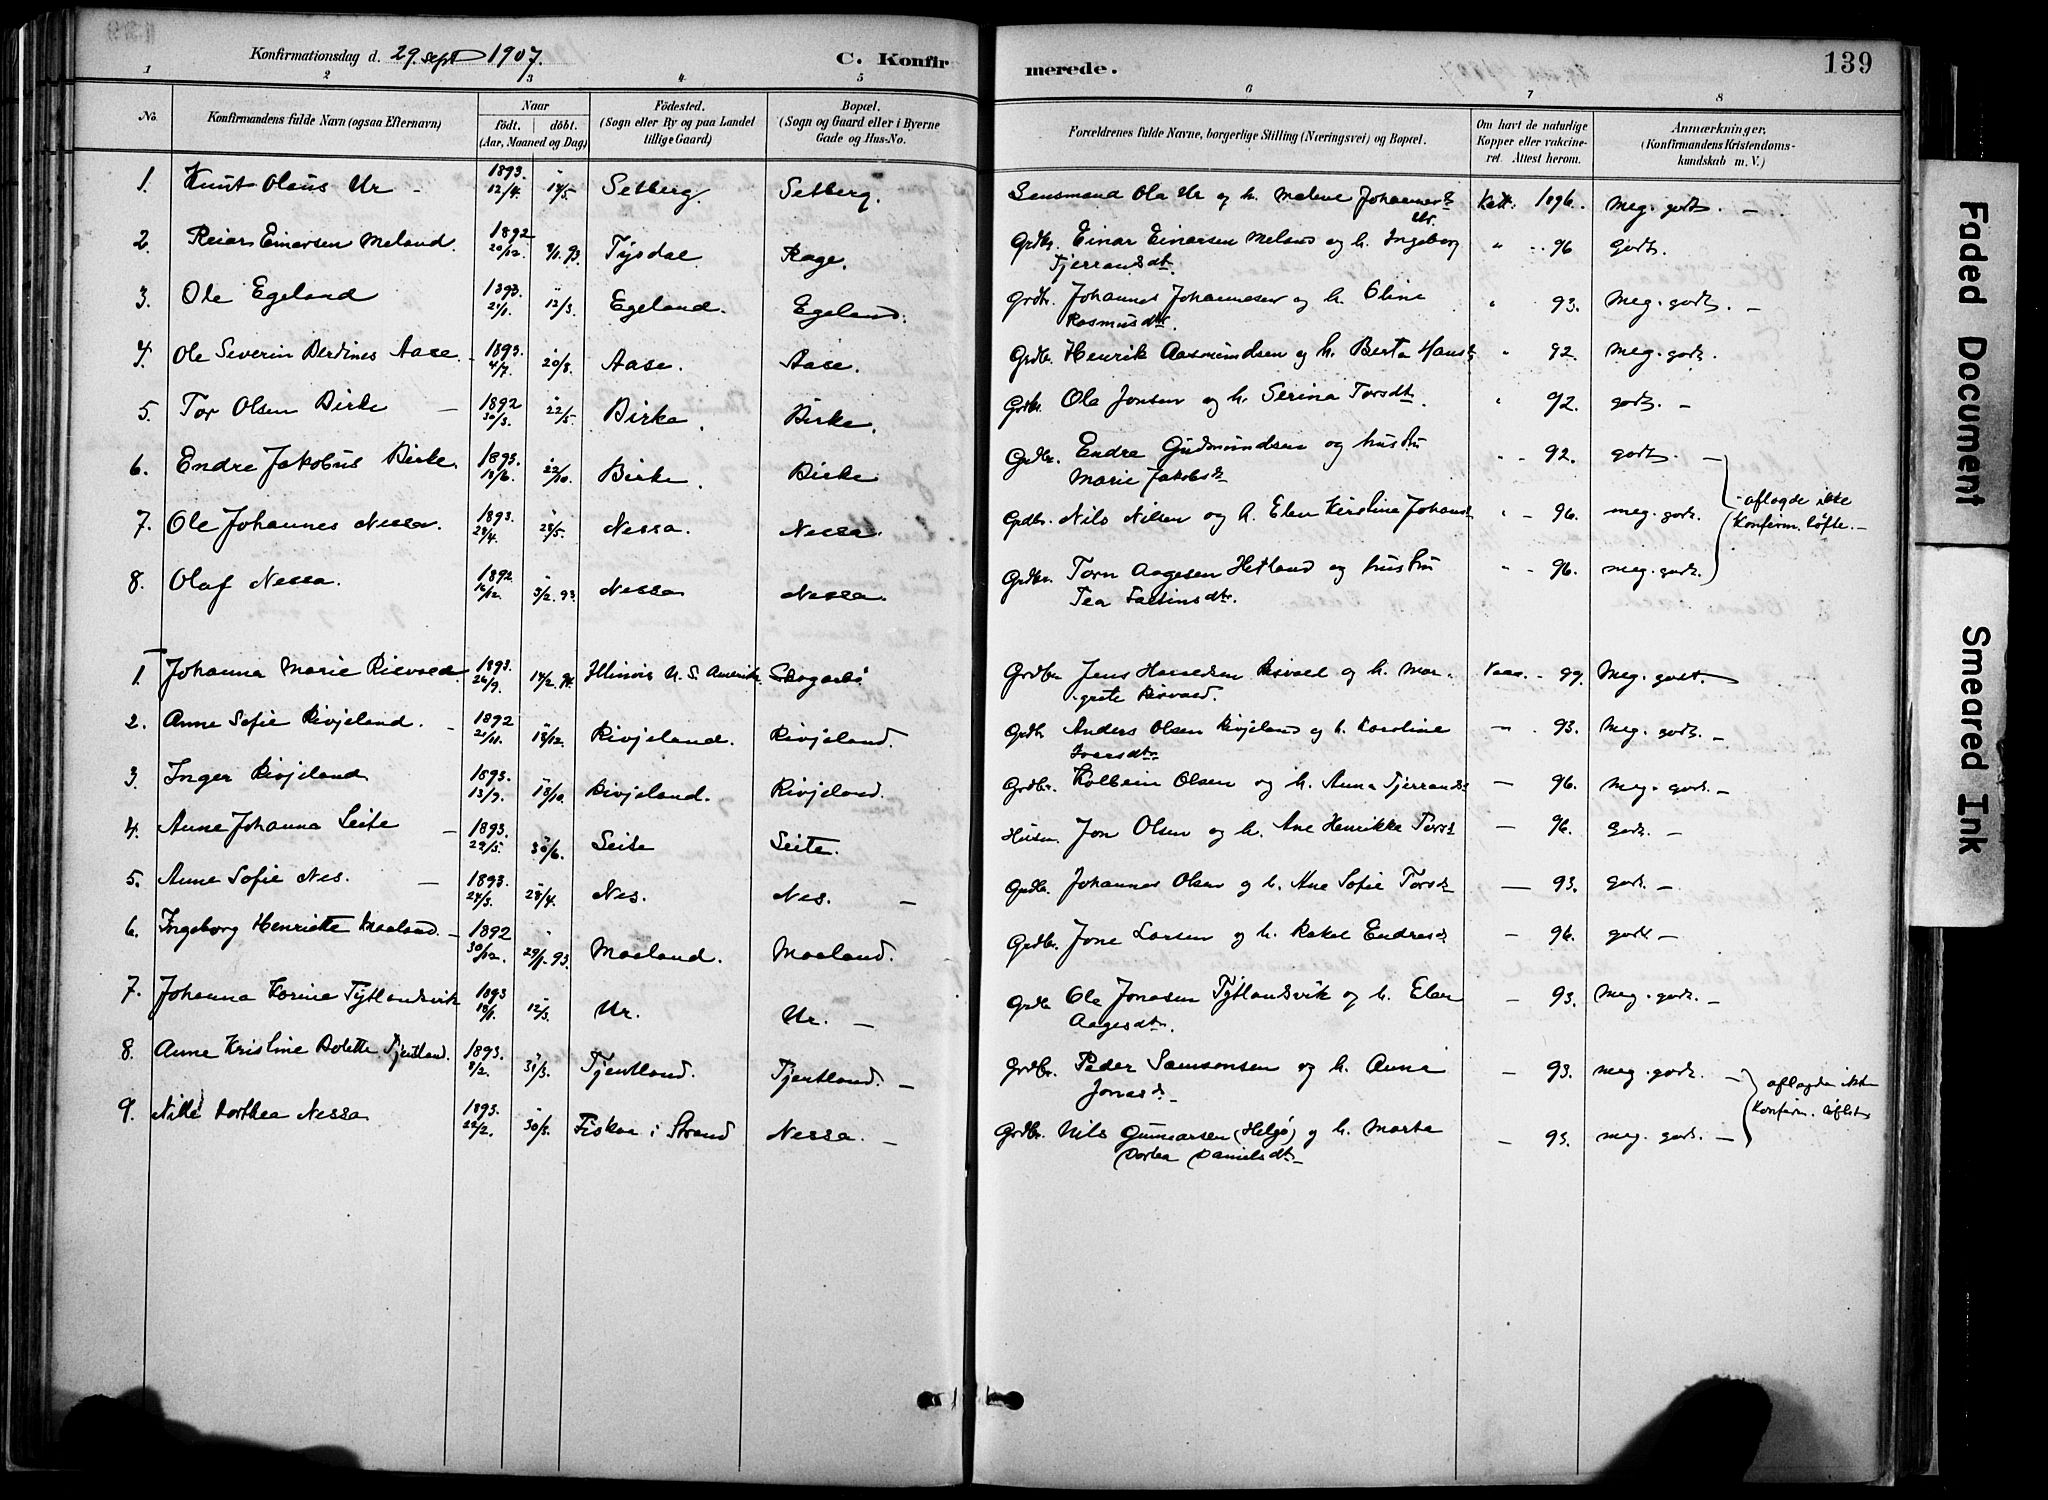 Konfirmationsdag d. 29 sept 1907.
C. Konfirmerede.
139
1 2 3 4 5 6 7 8
No.
Konfirmandens fulde Navn (ogsaa Efternavn)
Naar
födt. döbt.
(Aar, Maaned og Dag)
Födested.
(Sogn eller By og paa Landet
tillige Gaard)
Bopæl.
(Sogn og Gaard eller i Byerne
Gade og Hus-No.
Forældrenes fulde Navne, borgerlige Stilling (Næringsvei) og Bopæl.
Om havt de naturlige
Kopper eller vakcine-
ret. Attest herom.
Anmærkninger,
(Konfirmandens Kristendoms-
kundskab m. V.)
1. Knut Olaus Ur - 1893. 12/4. 14/5. Setberg. Setberg. Lensmand Ola Ur og h. Malene Johannesdt Ur. 1896. Meg. godt. -
2. Reiar Einarsen Meland. 1892 20/12. 8/1. 93. Tysdal Rage. Grdbr. Einar Einarsen Meland og h. Ingeborg
Tjerrandsdt. " 96 Godt.
3. Ole Egeland 1893. 21/1. 12/3. Egeland. Egeland. Grdbr. Johannes Johannesen og h. Oline
Rasmusdtr. " 93. Meg. godt. -
4. Ole Severin Berdines Aase. 1893. 4/7. 20/8. Aase. Aase. Grdbr. Henrik Aasmundsen og h. Berta Hansdt " 92. Meg. godt.
5. Tor Olsen Birke - 1892 30/3. 22/5. Birke. Birke. Grdbr. Ole Jonsen og h. Serina Torsdt. " 92. godt. -
6. Endre Jakobus Birke. 1893. 18/6. 22/10. Birke. Birke Grdbr. Endre Gudmundsen og hustru
Marie Jakobsdt " 92. godt. -
7. Ole Johannes Nessa. 1893. 24/4. 28/5. Nessa. Nessa. Grdbr. Nils Nilsen og h. Elen Kirstine Johansdt " - 96. meg. godt.
aflagde ikke
Konfirm. løfte. -
8. Olaf Nessa. 1892. 16/12. 5/2. 93. Nessa Nessa. Grdbr. Torn Aagesen Hetland og hustru
Tea Tostinsdt. " - 96. meg. godt.
1. Johanna Marie Risvold 1893. 26/9. 14/2. 94. Illinois U. S. Amerika. Skogarbö Grdbr. Jens Hansen Risvold og h. Mar-
grete Risvold. Vacc. - 99. Meg. godt.
2. Anne Sofie Rivjeland. - 1892 21/11. 18/12. Rivjeland. Rivjeland. Grdbr. Anders Olsen Rivjeland og h. Karoline
Ivarsdtr. - 93. Meg. godt. -
3. Inger Rivjeland 1893. 13/9. 15/10. Rivjeland. Rivjeland. Grdbr. Kolbein Olsen og h. Anna Tjerrandsd - 96. Meg. godt. -
4. Anne Johanna Leite - 1893. 29/5. 30/6. Leite Leite. Husm. Jon Olsen og h. Ane Henrikke Torsdt - 96. Godt. -
5. Anne Sofie Nes. - 1893. 24/3. 23/4. Nes. Nes. - Grdbr. Johannes Olsen og h. Ane Sofie Torsdt - 93. godt. -
6. Ingeborg Henriette Maaland. - 1892 30/12. 29/1. 93. Maaland. Maaland. Grdbr. Jone Larsen og h. Rakel Endresdt - 96. godt. -
7. Johanna Karine Tytlandsvik 1893 18/1. 12/3. Ur. Ur. - Grdbr. Ole Jonasen Tytlandsvik og h. Elen
Aagesdtr. - 93. Meg. godt. -
8. Anne Kristine Bolette Tjentland. 1893. 8/2. 31/3. Tjentland. Tjentland. - Grdbr. Peder Samsonsen og h. Anna
Jonasdt. - 93. meg. godt. -
aflagde ikke
Konfirm. løftet
9. Nille Dorthea Nessa 1893. 22/2. 30/3. Fiskaa i Strand Nessa. - Grdbr. Nils Gunnarsen (Helgø) og h. Marta
Dortea Danielsdt. - 93. meg. godt. -
Faded Document
Smeared Ink